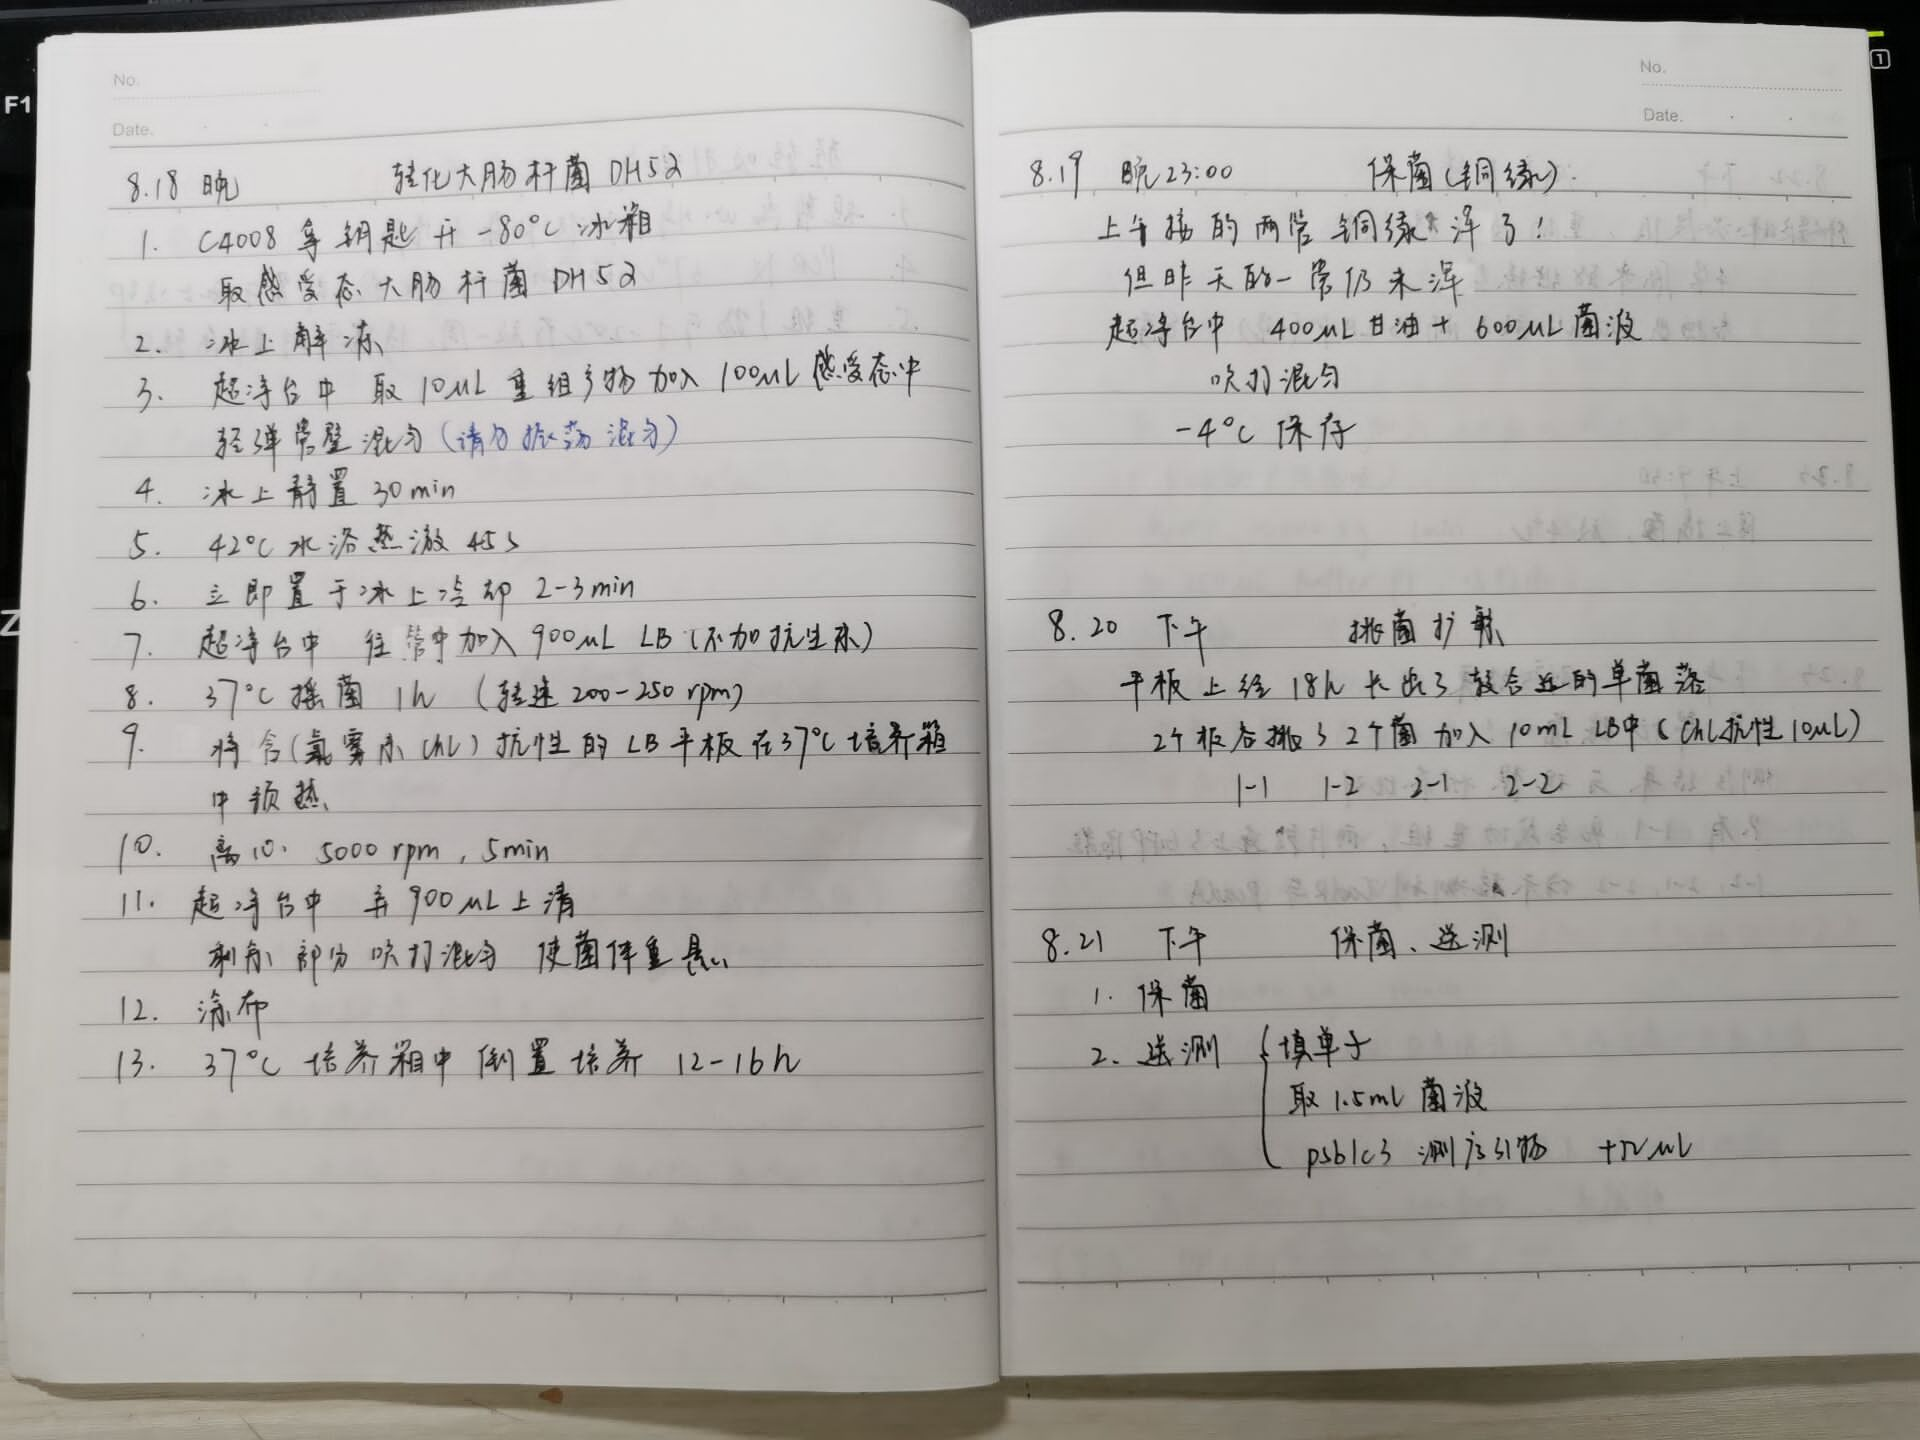 F1
Z
1
No.
Date.
8.18 晚 转化大肠杆菌 DH5α
1. C4008 拿钥匙 开 -80°C 冰箱
取感受态大肠杆菌 DH5α
2. 冰上解冻
3. 超净台中 取 10μL 重组产物 加入 100μL 感受态中
轻弹管壁混匀 (请勿振荡混匀)
4. 冰上静置 30min
5. 42°C 水浴热激 45s
6. 立即置于冰上冷却 2-3min
7. 超净台中 往管中加入 900μL LB (不加抗生素)
8. 37°C 摇菌 1h (转速 200-250 rpm)
9. 将含(氯霉素 Chl) 抗性的 LB 平板在 37°C 培养箱
中预热
10. 离心 5000 rpm, 5min
11. 超净台中 弃 900μL 上清
剩余部分吹打混匀 使菌体重悬
12. 涂布
13. 37°C 培养箱中倒置培养 12-16h
No.
Date.
8.19 晚 23:00 保菌 (铜绿).
上午接的两管铜绿 浑了!
但昨天的一管仍未浑
超净台中 400μL 甘油 + 600μL 菌液
吹打混匀
-4°C 保存
8.20 下午 挑菌扩繁
平板上经 18h 长出了较合适的单菌落
2个板各挑了2个菌 加入 10mL LB中 (Chl抗性 10μL)
1-1 1-2 2-1 2-2
8.21 下午 保菌、送测
1. 保菌
2. 送测 { 填单子
取 1.5mL 菌液
psb1c3 测序引物 μL